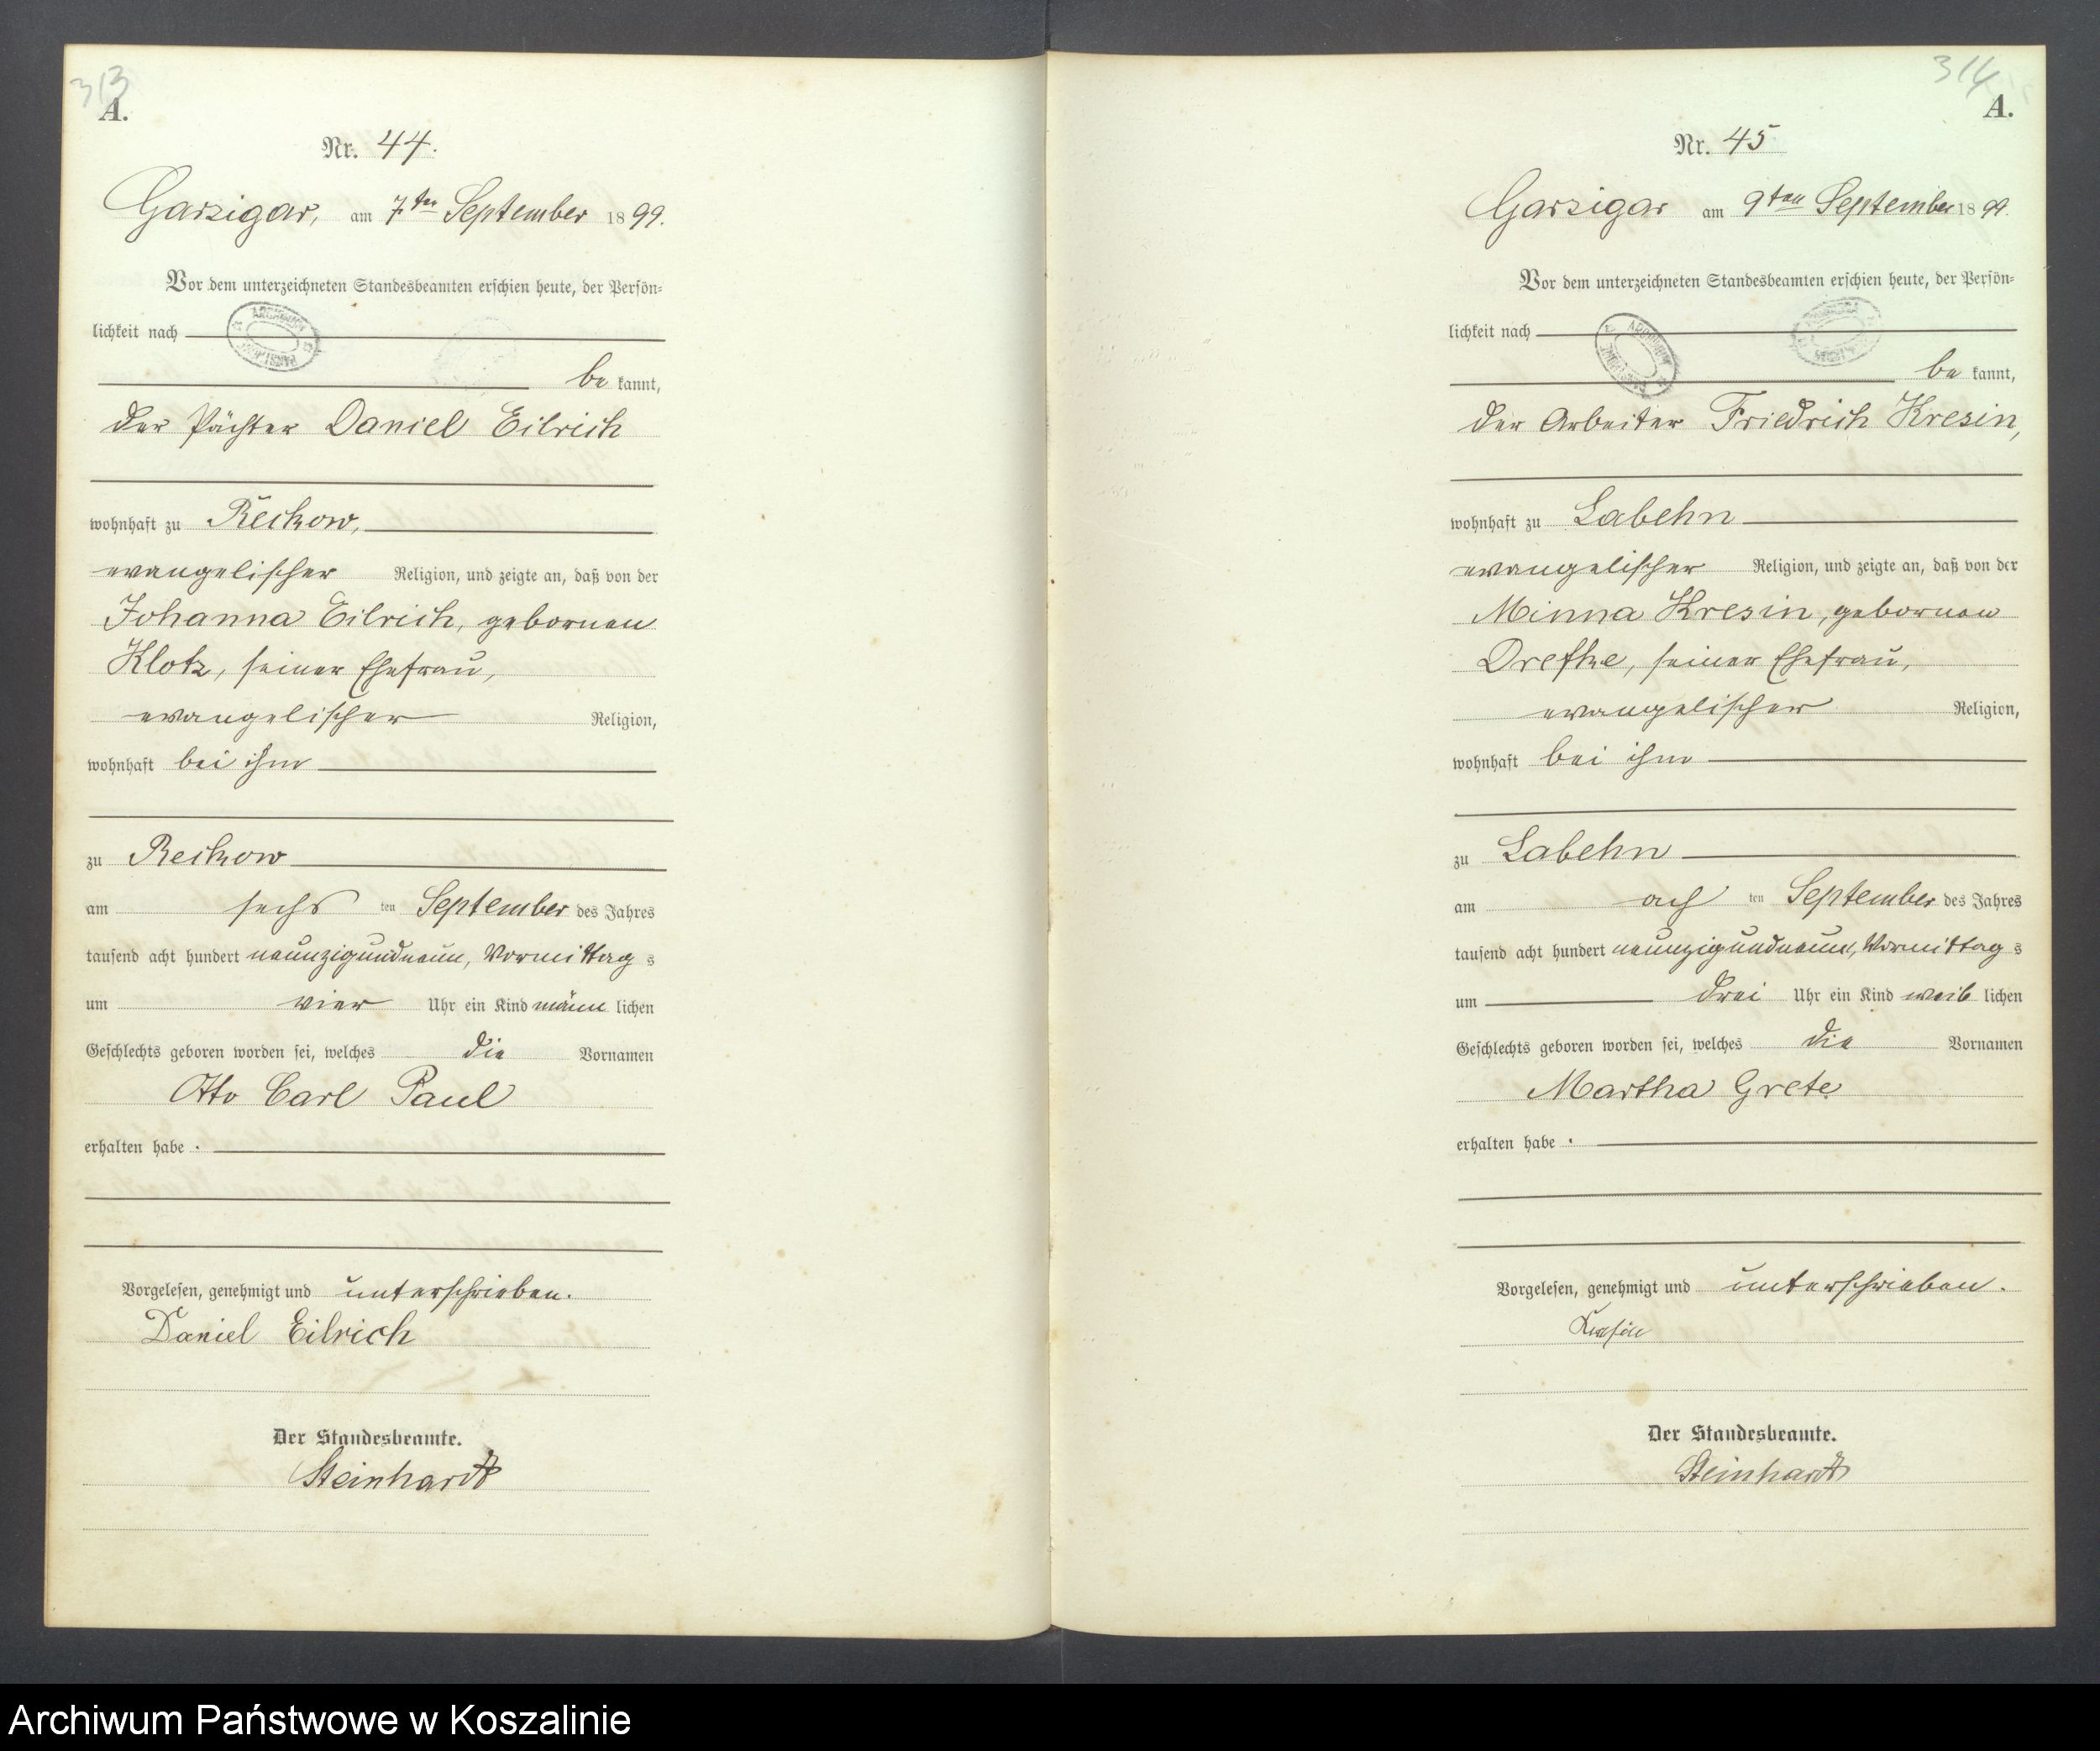 313
A.
Nr. 44.
Garzigar, am 7ten September 1899.
Vor dem unterzeichneten Standesbeamten erschien heute, der Persön=
lichkeit nach
be kannt,
der Pächter Daniel Eilrich
wohnhaft zu Reckow,
evangelischer Religion, und zeigte an, daß von der
Johanna Eilrich, gebornen
Klotz, seiner Ehefrau,
evangelischer Religion,
wohnhaft bei ihm
zu Reckow
am sechs ten September des Jahres
tausend acht hundert neunzigundneun, Vormittag s
um vier Uhr ein Kind männ lichen
Geschlechts geboren worden sei, welches die Vornamen
Otto Carl Paul
erhalten habe.
Vorgelesen, genehmigt und unterschrieben.
Daniel Eilrich
Der Standesbeamte.
Steinhardt
314
A.
Nr. 45
Garzigar am 9ten September 1899.
Vor dem unterzeichneten Standesbeamten erschien heute, der Persön=
lichkeit nach
be kannt,
der Arbeiter Friedrich Kresin,
wohnhaft zu Labehn
evangelischer Religion, und zeigte an, daß von der
Minna Kresin, gebornen
Drefke, seiner Ehefrau,
evangelischer Religion,
wohnhaft bei ihm
zu Labehn
am ach ten September des Jahres
tausend acht hundert neunzigundneun, Vormittag s
um drei Uhr ein Kind weib lichen
Geschlechts geboren worden sei, welches die Vornamen
Martha Grete
erhalten habe.
Vorgelesen, genehmigt und unterschrieben.
Der Standesbeamte.
Steinhardt
Archiwum Państwowe w Koszalinie